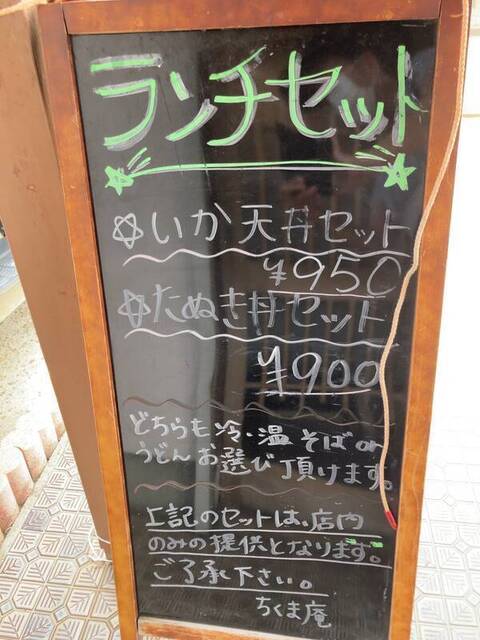 ランチセット
☆いか天丼セット
¥950
☆たぬき丼セット
¥900
どちらも冷・温 そばor
うどんお選び頂けます。
上記のセットは、店内
のみの提供となります。
ご了承下さい。
ちくま庵